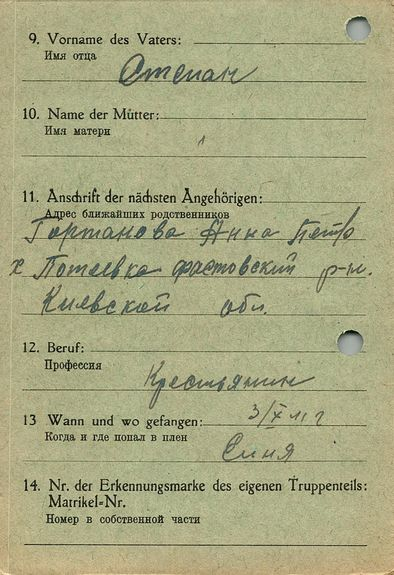 9. Vorname des Vaters:
Имя отца
Степан
10. Name der Mutter:
Имя матери
11. Anschrift der nächsten Angehörigen:
Адрес ближайших родственников
Горта­нова Анна Петр
х Потеевка фастовский р-н.
Киевской обл.
12. Beruf:
Профессия
Крестьянин
13 Wann und wo gefangen: 3/X 41 г
Когда и где попал в плен
14. Nr. der Erkennungsmarke des eigenen Truppenteils:
Matrikel=Nr.
Номер в собственной части